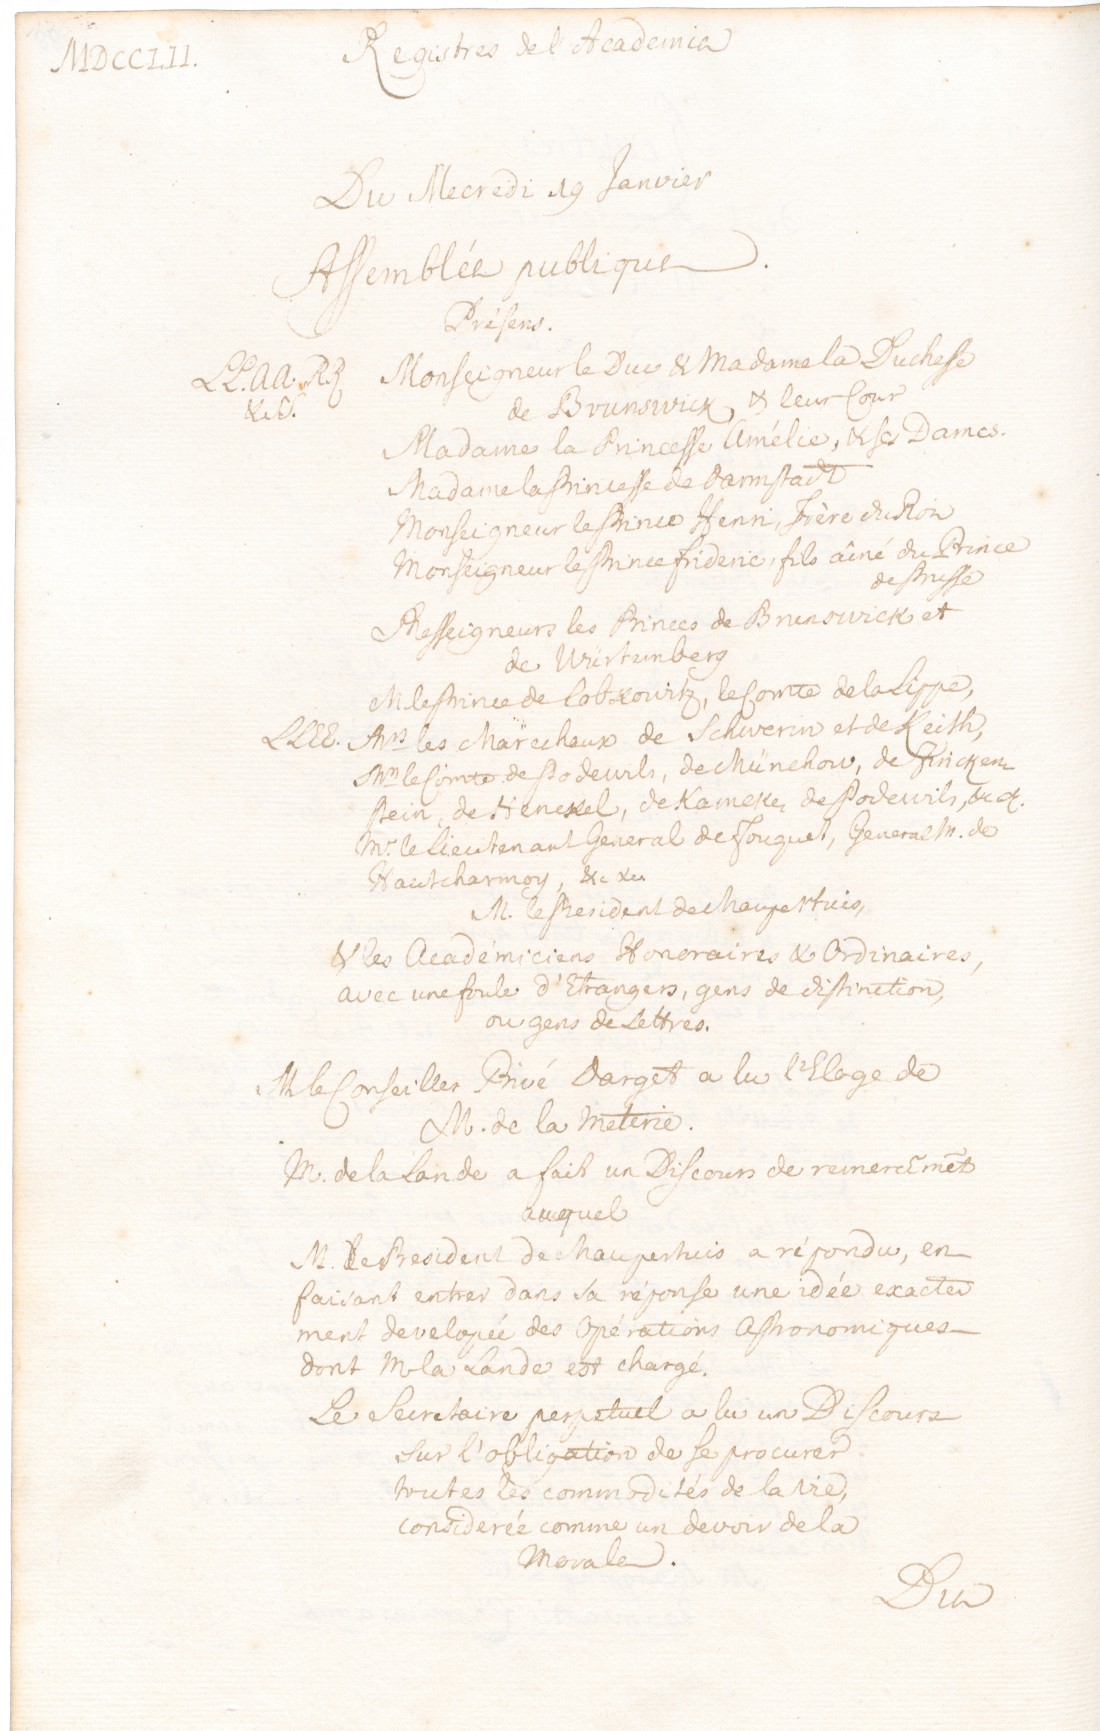 MDCCLII.
Registres de l'Academie
Du Mecredi 19 Janvier
Assemblée publique.
Présens.
LL. AA. RR. Monseigneur le Duc & Madame la Duchesse
& S. de Brunswick, & leur Cour
Madame la Princesse Amélie, & ses Dames.
Madame la Princesse de Darmstadt
Monseigneur le Prince Henri, Frère du Roi
Monseigneur le Prince Frideric, fils aîné du Prince
de Prusse
Messeigneurs les Princes de Brunswick et
de Würtemberg
M. le Prince de Lobkowitz, le Comte de la Lippe,
LLEE. Mrs les Marëchaux de Schwerin et de Keith,
Mrs le Comte de Podewils, de Münchow, de Fincken-
stein, de Henckel, de Kameke, de Podewils, &c &.
Mr. le Lieutenant General de Fouquet, General M. de
Hautcharmoy, &c &c
M. le President de Maupertuis,
& les Académiciens Honoraires & Ordinaires,
avec une foule d'Etrangers, gens de distinction,
ou gens de Lettres.
M. le Conseiller Privé Darget a lu l'Eloge de
M. de la Metrie.
M. de la Lande a fait un Discours de remercimēt
auquel
M. le President de Maupertuis a répondu, en
faisant entrer dans sa réponse une idée exacte
ment developée des Opérations Astronomiques
dont M. la Lande est chargé.
Le Secretaire perpetuel a lu un Discours
sur l'obligation de se procurer
toutes les commodités de la vie,
considerée comme un devoir de la
Morale.
Du